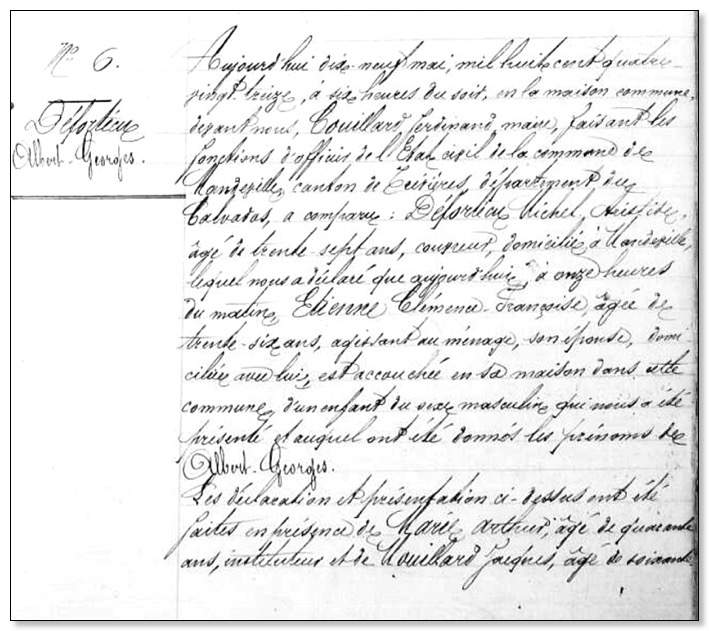 N° 6.
Déforlieux
Albert-Georges.
Aujourd'hui dix-neuf mai, mil huit cent quatre-
vingt-treize, à six heures du soir, en la maison commune,
devant nous, Couillard, Ferdinand, maire, faisant les
fonctions d'officier de l'Etat civil de la commune de
Mandeville, canton de Trévières, département du
Calvados, a comparu : Michel, Aristide,
âgé de trente-sept ans, couvreur, domicilié à Mandeville,
lequel nous a déclaré que aujourd'hui, à onze heures
du matin, Etienne Clémence-Françoise, âgée de
trente-six ans, agissant au ménage, son épouse, domi-
ciliée avec lui, est accouchée en sa maison dans cette
commune, d'un enfant du sexe masculin qui nous a été
présenté et auquel ont été donnés les prénoms de
Albert-Georges.
Les déclaration et présentation ci-dessus ont été
faites en présence de Marie, Arthur, âgé de quarante
ans, instituteur et de Jacques, âgé de soixante